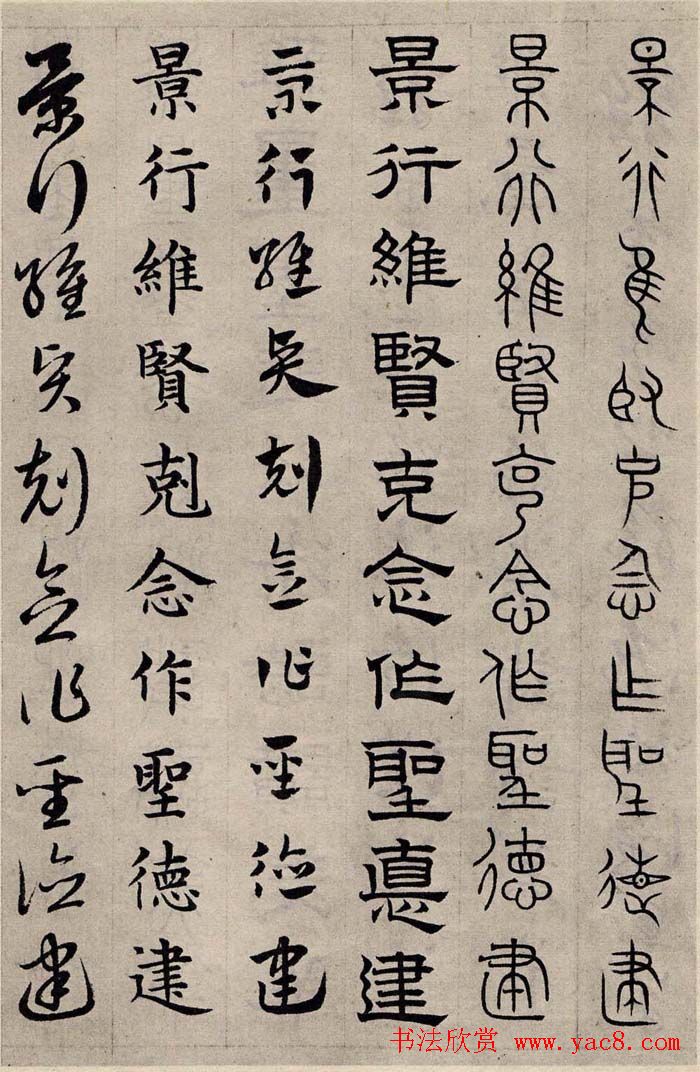 景行維賢克念作聖德建
景行維賢克念作聖德建
景行維賢克念作聖悳建
景行維賢剋念作聖德建
景行維賢剋念作聖德建
景行維賢剋念作聖德建
书法欣赏 www.yac8.com